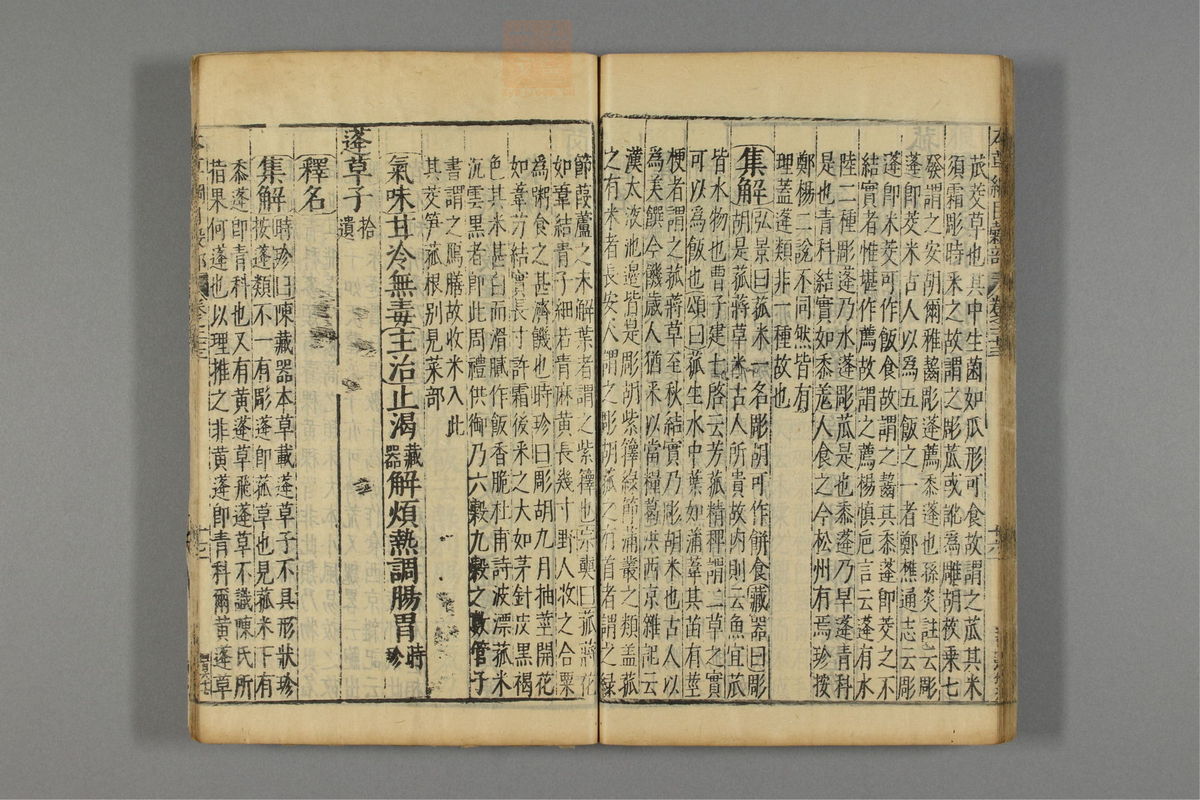 苽茭草也其中生菌如瓜形可食故謂之苽其米
須霜彫時采之故謂之彫苽或訛爲雕胡枚乗七
發謂之安胡爾雅齧彫蓬薦黍蓬也孫炎註云彫
蓬即茭米古人以爲五飯之一者鄭樵通志云彫
蓬即米茭可作飯食故謂之齧其黍蓬即茭之不
結實者惟堪作薦故謂之薦楊慎巵言云蓬有水
陸二種彫蓬乃水蓬彫苽是也黍蓬乃旱蓬青科
是也青科結實如黍羗人食之今松州有焉珍按
鄭楊二說不同然皆有
理蓋蓬類非一種故也
集解弘景曰菰米一名彫胡可作餅食藏器曰彫
胡是菰蔣草米古人所貴故内則云魚宜苽
皆水物也曹子建七啓云芳菰精稗謂二草之實
可以爲飯也頌曰菰生水中葉如蒲葦其苗有莖
梗者謂之菰蔣草至秋結實乃彫胡米也古人以
爲美饌今饑歲人猶采以當糧葛洪西京雜記云
漢太液池邊皆是彫胡紫籜綠節蒲叢之類盖菰
之有米者長安人謂之彫胡菰之有首者謂之緑
節葭蘆之未解葉者謂之紫籜也宗奭曰菰蔣花
如葦結青子細若青麻黄長幾寸野人收之合粟
爲粥食之甚濟饑也時珍曰彫胡九月抽莖開花
如葦芀結實長寸許霜後采之大如茅針皮黑褐
色其米甚白而滑膩作飯香脆杜甫詩波漂菰米
沉雲黑者即此周禮供御乃六穀九穀之數管子
書謂之鴈膳故收米入此
其茭笋菰根别見菜部
氣味甘冷無毒主治止渴藏器解煩熱調腸胃時珍
蓬草子拾遺
釋名
集解時珍曰陳藏器本草載蓬草子不具形狀珍
按蓬類不一有彫蓬即菰草也見菰米下有
黍蓬即青科也又有黄蓬草飛蓬草不識陳氏所
指果何蓬也以理推之非黄蓬即青科爾黄蓬草